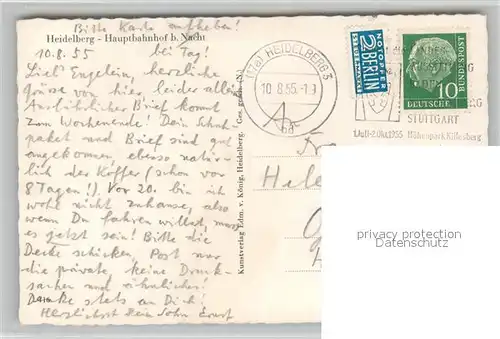 Bitte Karte aufheben!
Heidelberg - Hauptbahnhof b. Nacht
10.8.55 bei Tag!
Liebs Engelein, herzliche
Grüsse von hier, leider allein
Ausführlicher Brief kommt
zum Wochenende! Dein Schuh-
paket und Brief sind gut
angekommen, ebenso natür-
lich der Koffer (schon vor
8 Tagen!). Vor 20. bin ich
wohl nicht zuhause, also
wenn Du fahren willst, muss
es jetzt sein! Bitte die
Decke schicken, Post nur
die private, keine Druck-
sachen und ähnliches!
Danke stets an Dich!
Herzlichst Dein Sohn Ernst
Kunstverlag Edm. v. König, Heidelberg. Ges. gesch.
(17a) HEIDELBERG 3
10.8.55.-1.
bd
NOTOPFER
2 BERLIN
STEUERMARKE
DEUTSCHE
BUNDESPOST
10
STUTTGART
1955 Höhenpark Killesberg
An
privacy protection
Datenschutz